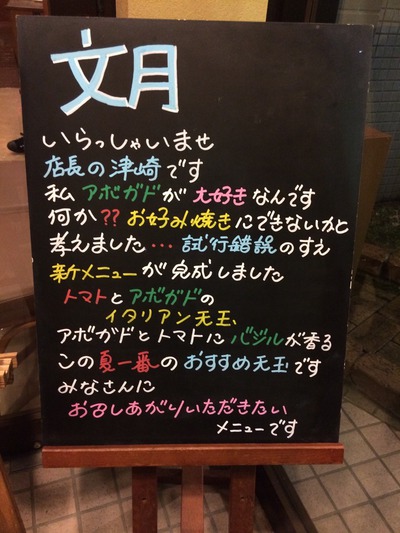 文月
いらっしゃいませ
店長の津崎です
私 アボガドが 大好きなんです
何か?? お好み焼きにできないかと
考えました… 試行錯誤のすえ
新メニューが完成しました
トマトとアボガドの
イタリアン天王、
アボガドとトマトにバジルが香る
この夏一番のおすすめ天王です
みなさんに
お召しあがりいただきたい
メニューです